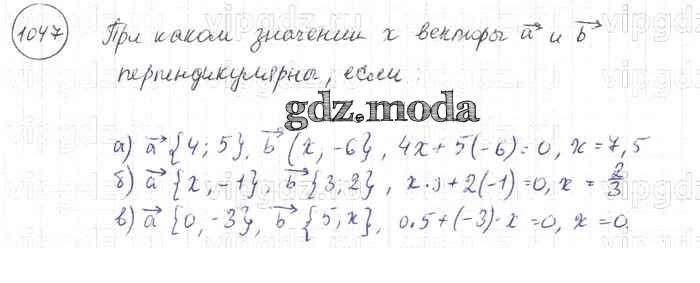 1047 При каком значении x векторы a⃗ и b⃗
перпендикулярны, если:
gdz.moda
а) a⃗ {4; 5}, b⃗ {x, -6}, 4x + 5(-6) = 0, x = 7,5
б) a⃗ {x, -1} b⃗ {3, 2}, x·3 + 2(-1) = 0, x = 2/3
в) a⃗ {0, -3}, b⃗ {5, x}, 0·5 + (-3)·x = 0, x = 0.